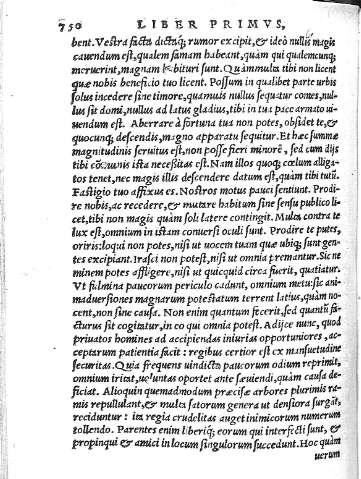 750 LIBER PRIMVS,
bent. Vestra facta dictaq́; rumor excipit, & ideò nullis magis
cauendum est, qualem famam habeant, quàm qui qualemcunq;
meruerint, magnam habituri sunt. Quàm multa tibi non licent
quæ nobis beneficio tuo licent. Possum in qualibet parte urbis
solus incedere sine timore, quamuis nullus sequatur comes, nul-
lus sit domi, nullus ad latus gladius, tibi in tua pace armato ui-
uendum est. Aberrare à fortuna tua non potes, obsidet te, &
quocunq; descendis, magno apparatu sequitur. Et hæc summæ
magnitudinis seruitus est, non posse fieri minorē, sed cum dijs
tibi cōmunis ista necessitas est. Nam illos quoq; cœlum alliga-
tos tenet, nec magis illis descendere datum est, quàm tibi tutū.
Fastigio tuo affixus es. Nostros motus pauci sentiunt. Prodi-
re nobis, ac recedere, & mutare habitum sine sensu publico li-
cet, tibi non magis quàm soli latere contingit. Multa contra te
lux est, omnium in istam conuersi oculi sunt. Prodire te putes,
oriris: loqui non potes, nisi ut uocem tuam quæ ubiq; sunt gen-
tes excipiant. Irasci non potest, nisi ut omnia tremant. Sic ne
minem potes affligere, nisi ut quicquid circa fuerit, quatiatur.
Vt fulmina paucorum periculo cadunt, omnium metu: sic ani-
maduersiones magnarum potestatum terrent latius, quàm no-
cent, non sine causa. Non enim quantum fecerit, sed quantū fa-
cturus sit cogitatur, in eo qui omnia potest. Adijce nunc, quod
priuatos homines ad accipiendas iniurias opportuniores, ac-
ceptarum patientia facit: regibus certior est ex mansuetudine
securitas. Quia frequens uindicta paucorum odium reprimit,
omnium irritat, uoluntas oportet ante sæuiendi, quàm causa de-
ficiat. Alioquin quemadmodum præcisæ arbores plurimis ra-
mis repullulant, & multa satorum genera ut densiora surgāt,
reciduntur: ita regia crudelitas auget inimicorum numerum
tollendo. Parentes enim liberiq́; eorum qui interfecti sunt, &
propinqui & amici in locum singulorum succedunt. Hoc quàm
uerum